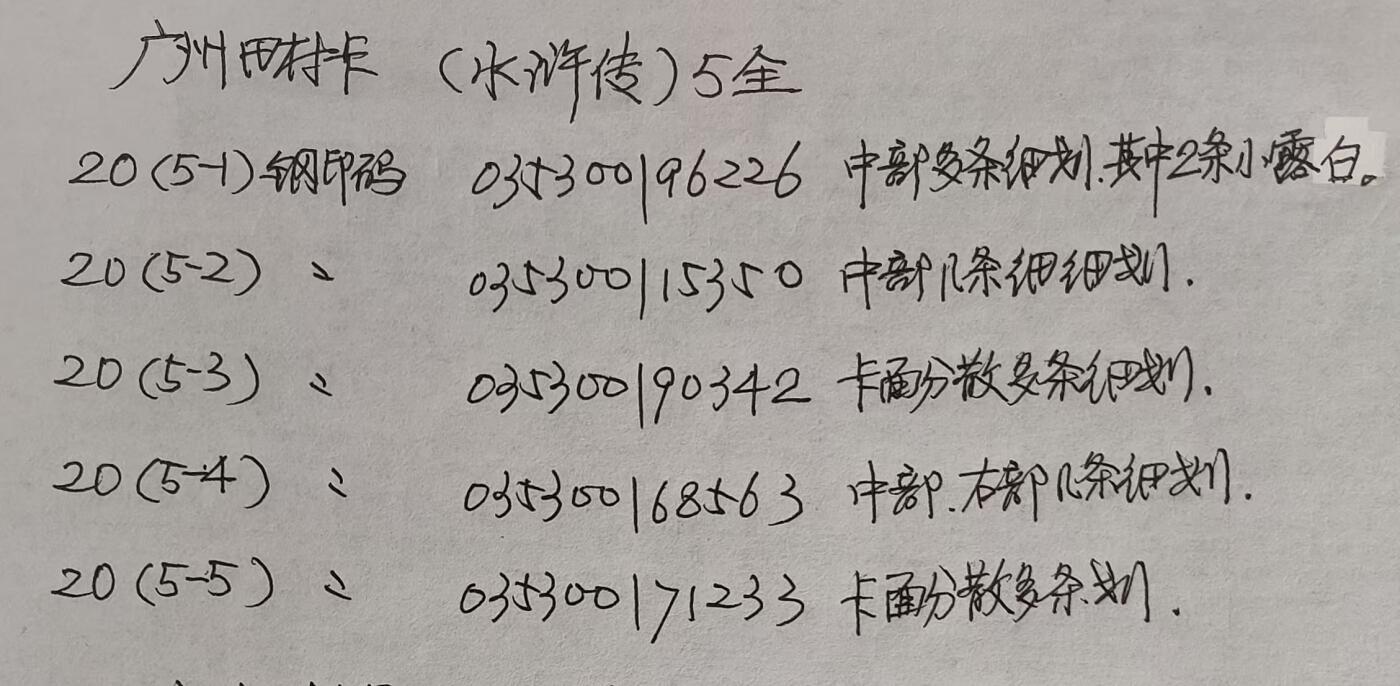 广州田村卡 (水浒传) 5全
20 (5-1) 钢印码 035300196226 中部多条细划.其中2条小露白。
20 (5-2) 〃 035300115350 中部几条细细划.
20 (5-3) 〃 035300190342 卡面分散多条细划.
20 (5-4) 〃 035300168563 中部.右部几条细划.
20 (5-5) 〃 035300171233 卡面分散多条划.